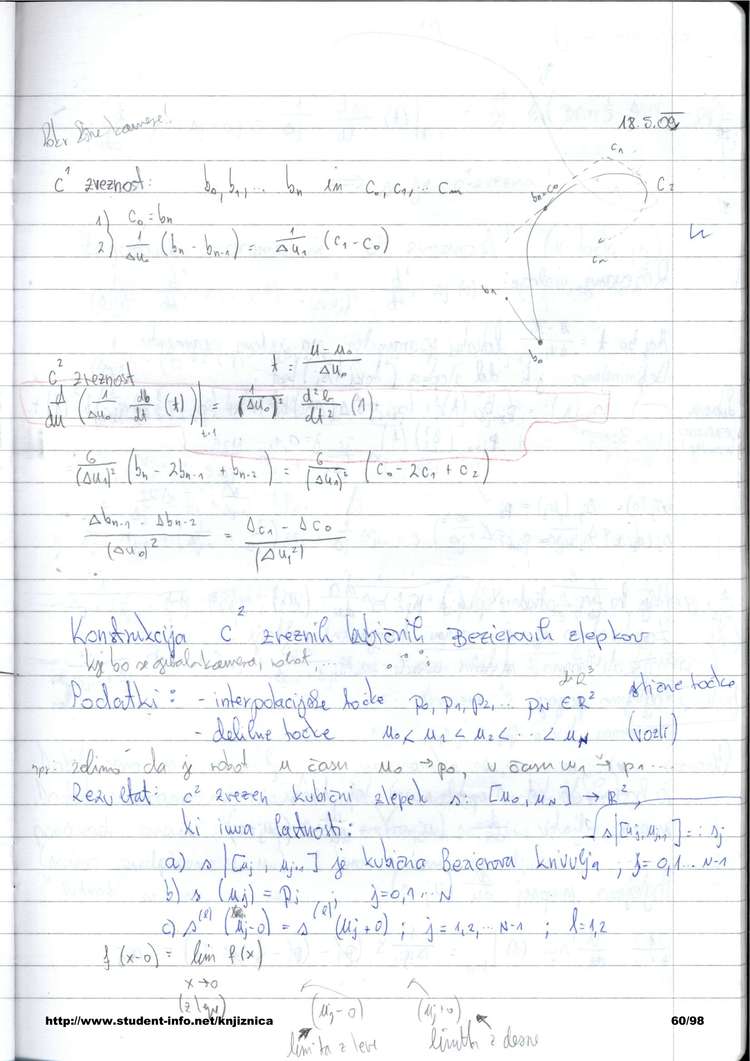 18.5.09
C¹ zveznost: b₀, b₁, ... bₙ in c₀, c₁, ... cₘ
1) c₀ = bₙ
2) 1/Δu₀ (bₙ - bₙ₋₁) = 1/Δu₁ (c₁ - c₀)
c₁
c₂
bₙ=c₀
cₘ
b₁
b₀
C² zveznost
t = (u - u₀)/Δu₀
d/du (1/Δu₀ db/dt (t)) |ₜ₌₁ = 1/(Δu₀)² d²b/dt² (1)
6/(Δu₁)² (bₙ - 2bₙ₋₁ + bₙ₋₂) = 6/(Δu₁)² (c₀ - 2c₁ + c₂)
(Δbₙ₋₁ - Δbₙ₋₂)/(Δu₀)² = (Δc₁ - Δc₀)/(Δu₁²)
Konstrukcija C² zveznih kubičnih Bezierovih zlepkov
kje bo se gibala kamera, robot ...
Podatki: - interpolacijske točke p₀, p₁, p₂, ... p_N ∈ R² ali R³ stične točke
- delilne točke u₀ < u₁ < u₂ < ... < u_N (vozli)
npr: želimo da je robot v času u₀ → p₀, v času u₁ → p₁ ...
Rezultat: c² zvezen kubični zlepek s: [u₀, u_N] → R²,
ki ima lastnosti: s|[uⱼ, uⱼ₊₁] =: sⱼ
a) s|[uⱼ, uⱼ₊₁] je kubična Bezierova krivulja, j = 0,1 ... N-1
b) s(uⱼ) = pⱼ ; j = 0,1 ... N
c) s⁽ˡ⁾(uⱼ-0) = s⁽ˡ⁾(uⱼ+0) ; j = 1,2,... N-1 ; l = 1,2
f(x-0) = lim f(x)
x→0
(z leve)
(uⱼ-0) (uⱼ+0)
limita z leve limita z desne
http://www.student-info.net/knjiznica 60/98